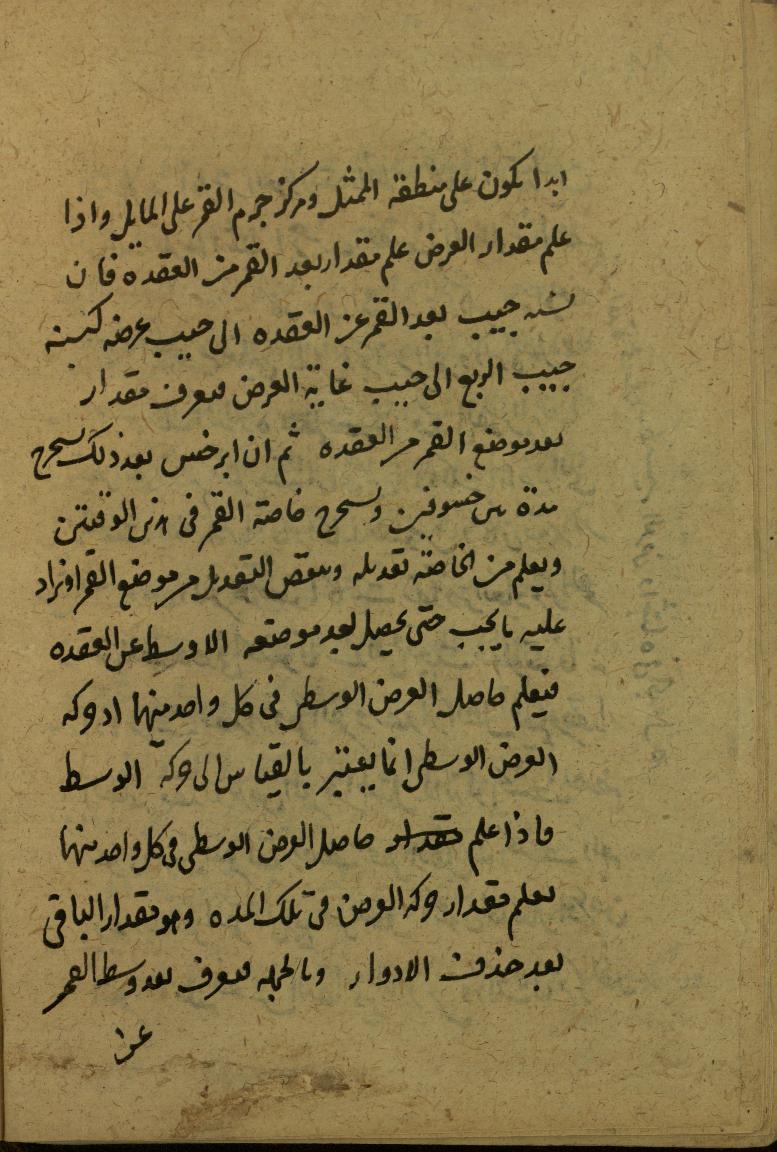 ابدا يكون على منطقة الممثل ومركز جرم القمر على المايل واذا
علم مقدار العرض علم مقدار بعد القمر من العقده فان
نسبه جيب بعد القمر عن العقده الى جيب عرضه كنسبه
جيب الربع الى جيب غاية العرض فيعرف مقدار
بعد موضع القمر من العقده ثم ان ابرخس بعد ذلك يستخرج
مدة بين خسوفين ويستخرج خاصة القمر فى هذين الوقتين
ويعلم من الخاصة تعديله وينقص التعديل من موضع القمر او يزاد
عليه ما يجب حتى يحصل بعد موضعه الاوسط عن العقده
فيعلم حاصل العرض الوسطى فى كل واحد منهما اذ حركه
العرض الوسطى انما يعتبر بالقياس الى حركة الوسط
فاذا علم حاصل العرض الوسطى فى كل واحد منهما
يعلم مقدار حركه العرض فى تلك المده وهو مقدار الباقى
بعد حذف الادوار وبالجمله فيعرف بعد وسط القمر
عن